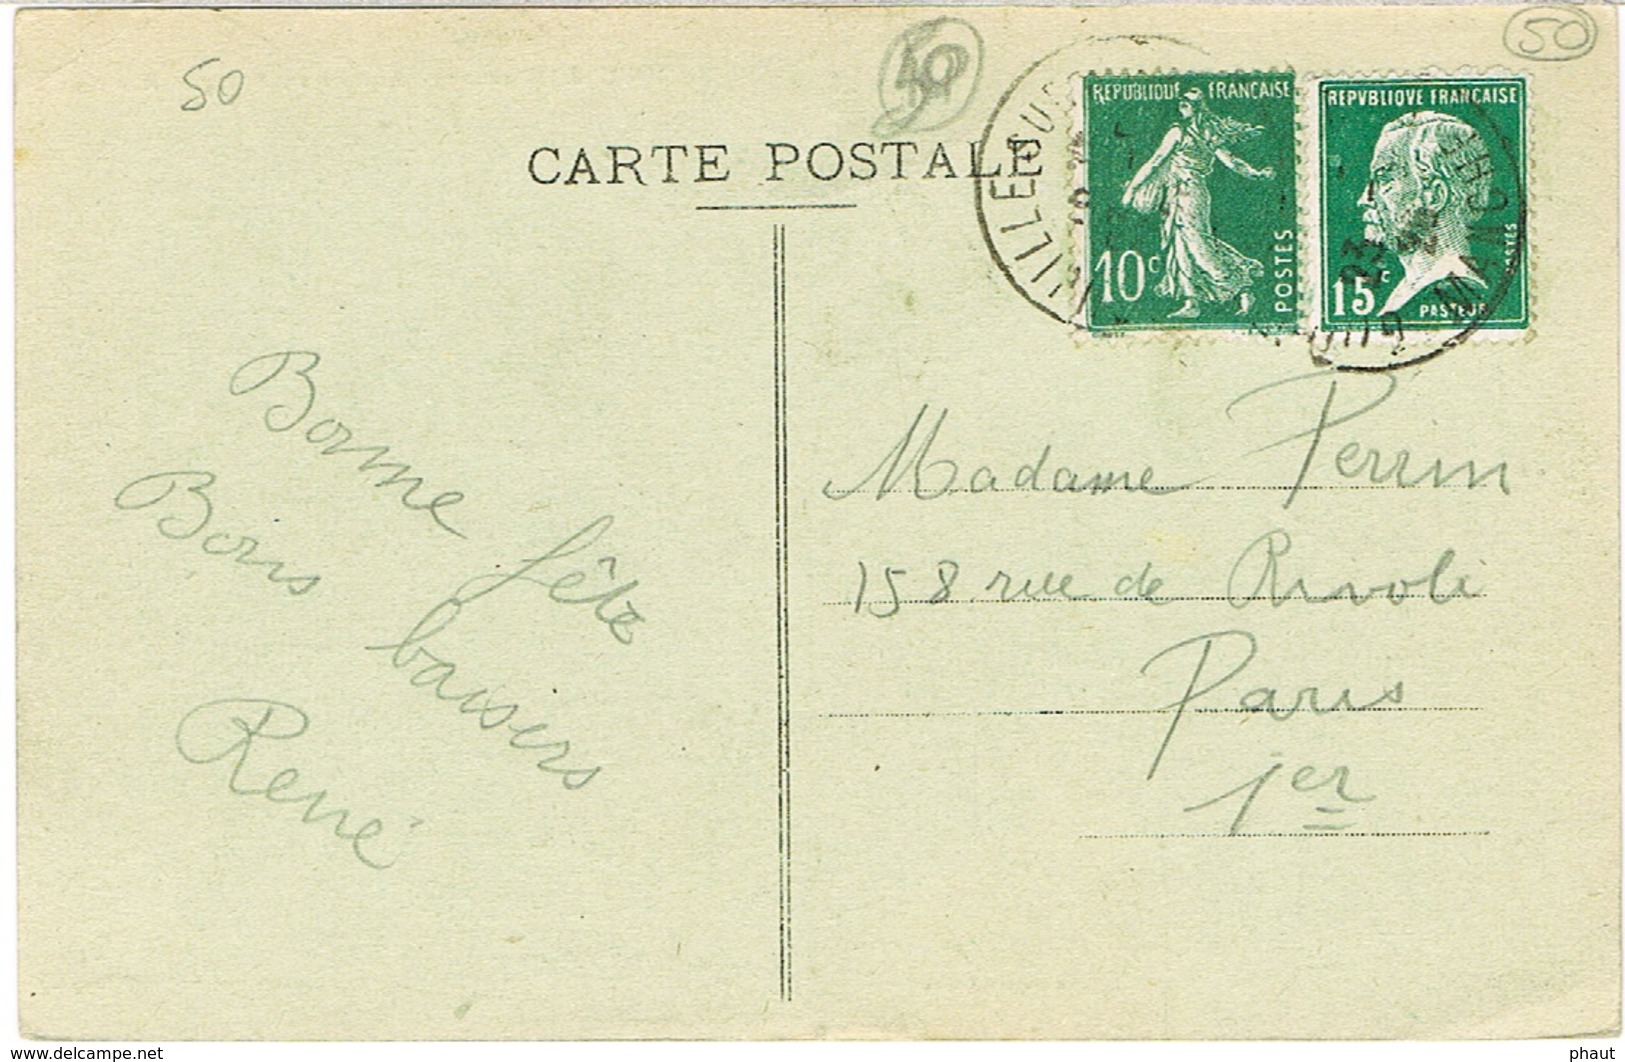 50
50
50
CARTE POSTALE
REPUBLIQUE FRANÇAISE
10c
POSTES
REPVBLIQVE FRANÇAISE
15c
POSTES
PASTEUR
MANCHE
23
Bonne fête
Bons baisers
René
Madame Perrin
158 rue de Rivoli
Paris
1er
www.delcampe.net
phaut